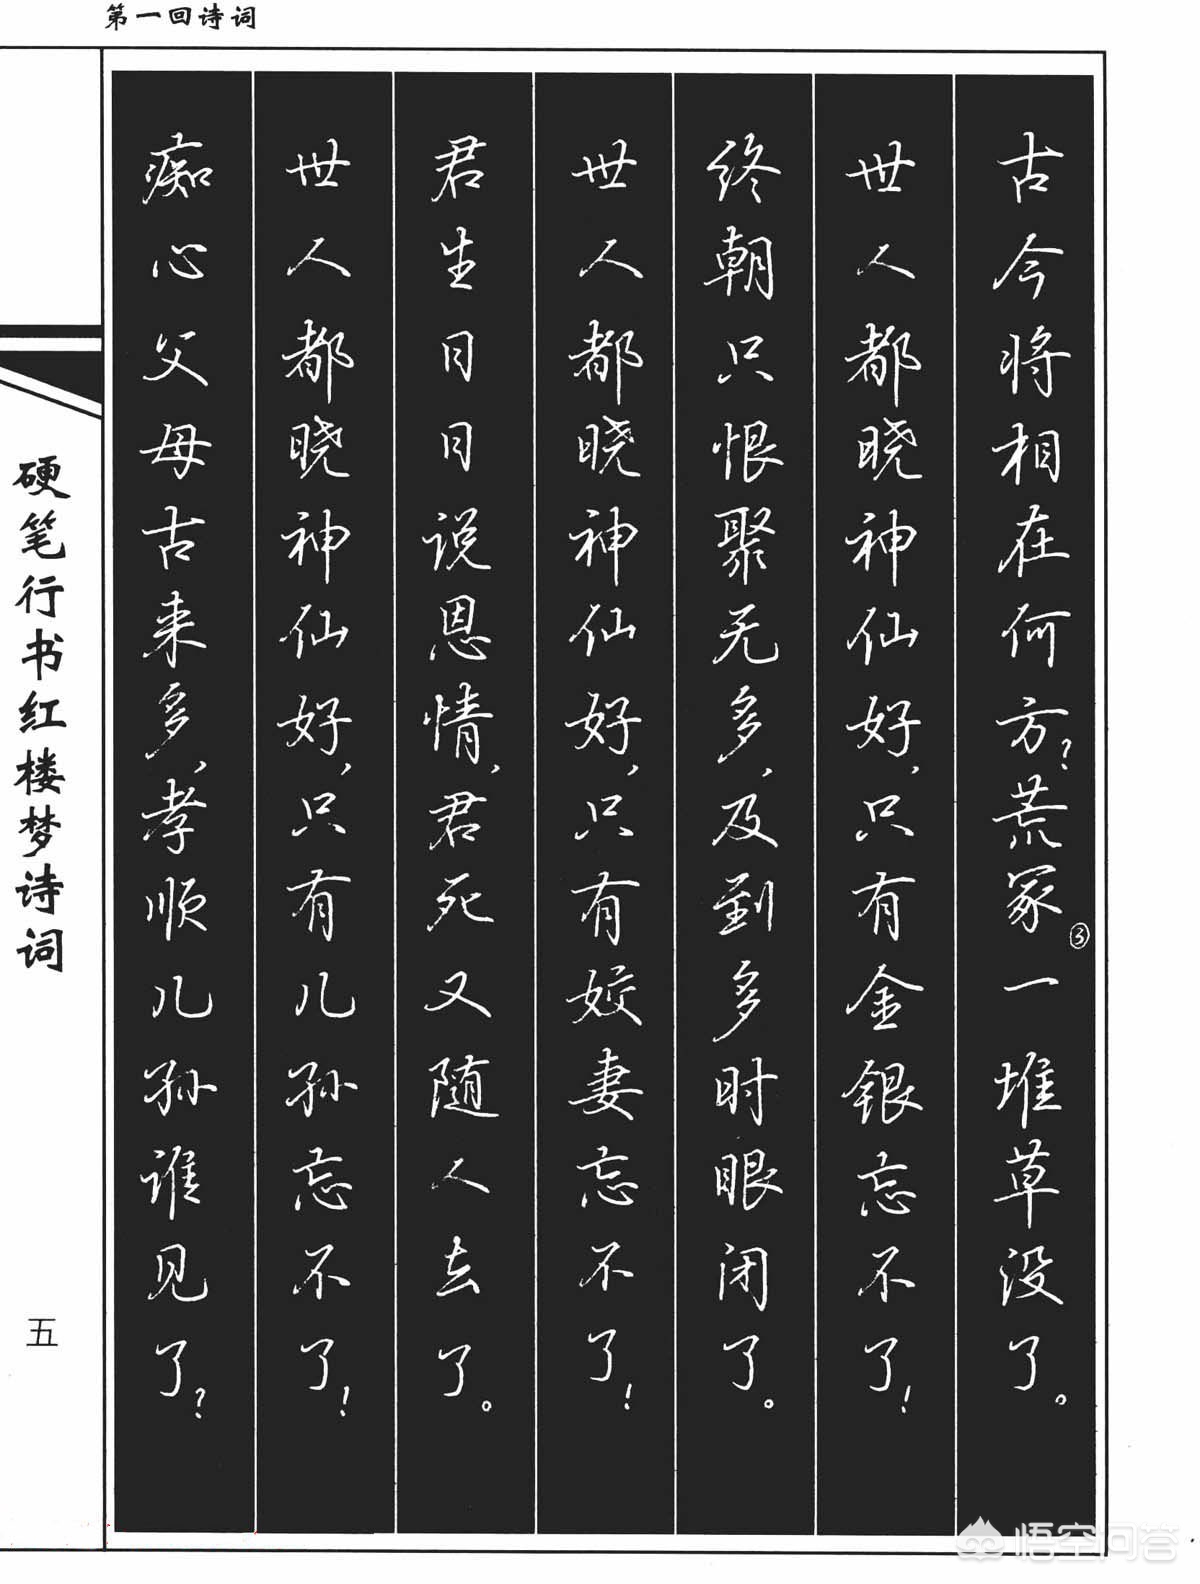 第一回诗词
古今将相在何方？荒冢③一堆草没了。
世人都晓神仙好，只有金银忘不了！
终朝只恨聚无多，及到多时眼闭了。
世人都晓神仙好，只有姣妻忘不了！
君生日日说恩情，君死又随人去了。
世人都晓神仙好，只有儿孙忘不了！
痴心父母古来多，孝顺儿孙谁见了？
硬笔行书红楼梦诗词
五
悟空问答